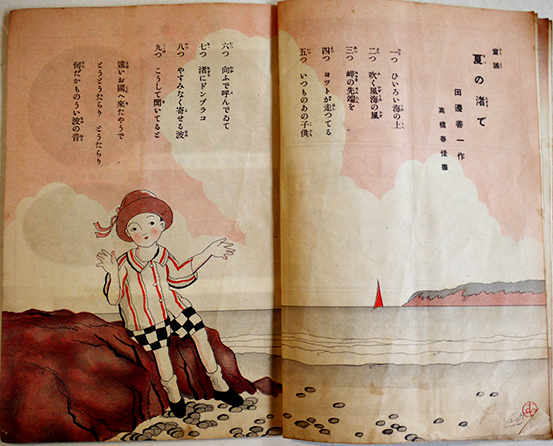 童謡
夏の渚で
田邊善一作
高橋春佳畵
一つ ひいろい海の上
二つ 吹く風海の風
三つ 岬の先端を
四つ ヨツトが走つてる
五つ いつものあの子供
六つ 向ふで呼んでゐて
七つ 渚にドンブラコ
八つ やすみなく寄せる波
九つ こうして聞いてると
遠いお國へ來たやうで
とうとうたらり とうたらり
何だかものうい波の音